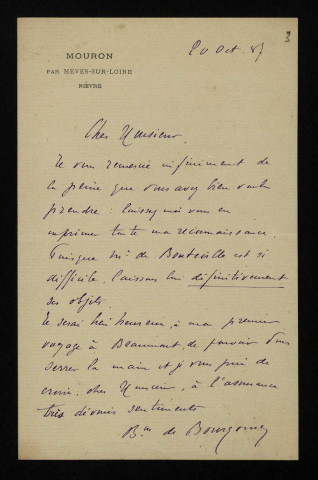 3
MOURON
PAR MEVES-SUR-LOIRE
NIÈVRE
20 Oct. 87
Cher Monsieur
Je vous remercie infiniment de
la peine que vous avez bien voulu
prendre : laissez moi vous en
exprimer toute ma reconnaissance.
Puisque Mr de Bouteville est si
difficile, laissons lui définitivement
ses objets.
Je serai très heureux, à mon premier
voyage à Beaumont, de pouvoir vous
serrer la main et je vous prie de
croire, cher Monsieur, à l'assurance
très dévoués sentiments
Bon de Bourgoing